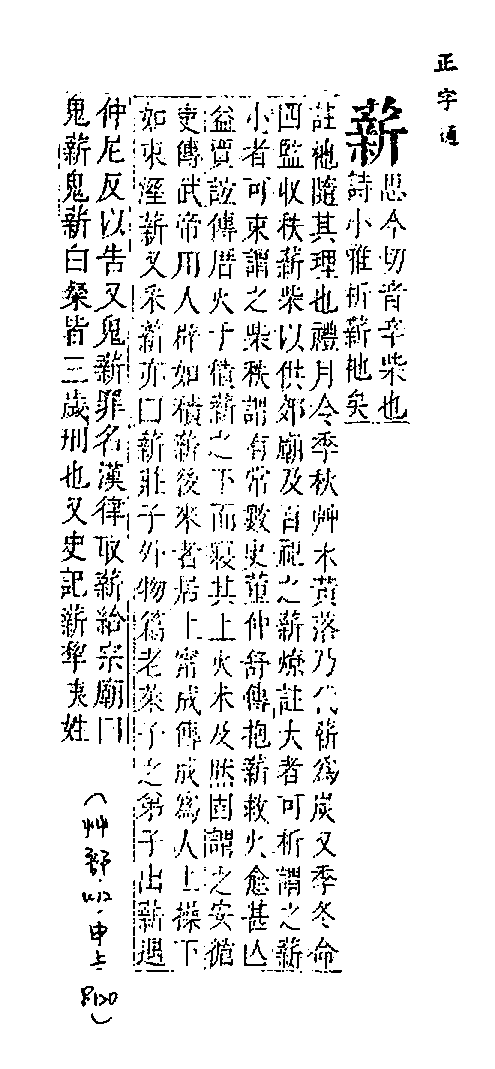 正字通
薪
思今切音辛柴也
詩小雅析薪杝矣
註杝隨其理也禮月令季秋艸木黃落乃伐薪爲炭又季冬命
四監收秩薪柴以供郊廟及百祀之薪燎註大者可析謂之薪
小者可束謂之柴秩謂有常數史董仲舒傳抱薪救火愈甚亾
益賈誼傳厝火于積薪之下而寢其上火未及然因謂之安循
吏傳武帝用人辟如積薪後來者居上甯成傳成爲人上操下
如束溼薪又采薪亦曰薪莊子外物篇老萊子之弟子出薪遇
仲尼反以告又鬼薪罪名漢律取薪給宗廟曰
鬼薪鬼薪白粲皆三歲刑也又史記薪犂夷姓
(艸部.申上